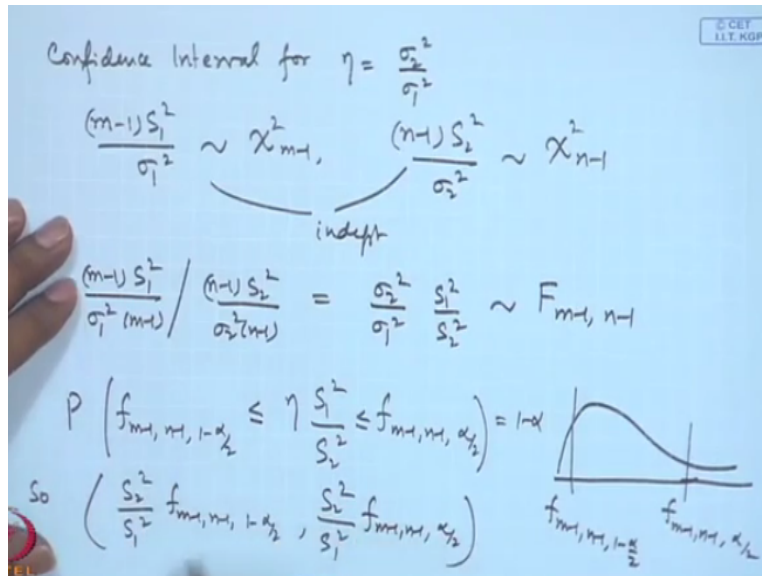 © CET
I.I.T. KGP
Confidence Interval for η = σ₂²/σ₁²
(m-1)S₁²/σ₁² ~ χ²ₘ₋₁, (n-1)S₂²/σ₂² ~ χ²ₙ₋₁
indept
(m-1)S₁²/σ₁²(m-1) / (n-1)S₂²/σ₂²(n-1) = σ₂²/σ₁² S₁²/S₂² ~ F_{m-1, n-1}
P (f_{m-1, n-1, 1-α/2} ≤ η S₁²/S₂² ≤ f_{m-1, n-1, α/2}) = 1-α
So (S₂²/S₁² f_{m-1, n-1, 1-α/2}, S₂²/S₁² f_{m-1, n-1, α/2})
f_{m-1, n-1, 1-α/2} f_{m-1, n-1, α/2}